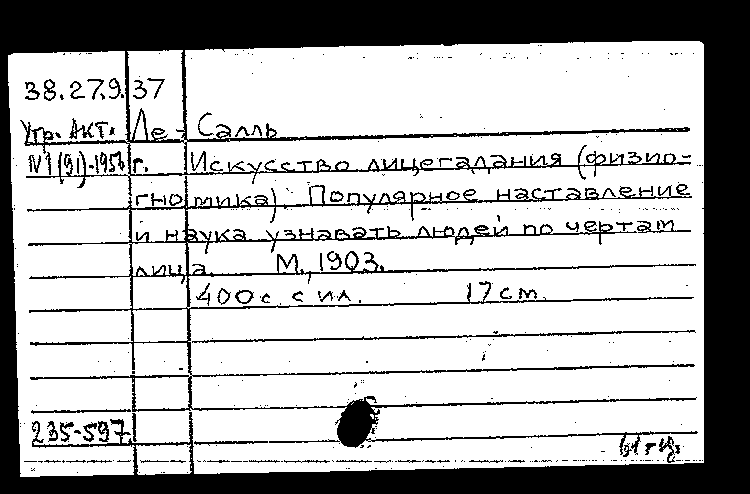 38.27.9.37
Утр. Акт. Ле-Салль
№1(91)-1956 г. Искусство лицегадания (физио-
гномика). Популярное наставление
и наука узнавать людей по чертам
лица. М., 1903.
400 с. с ил. 17 см.
235-597.